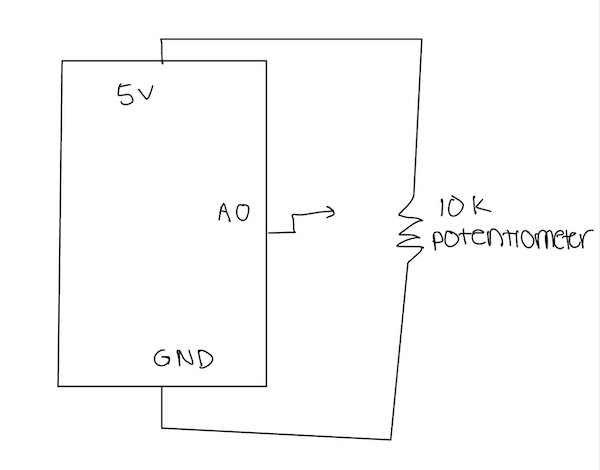 5V
A0
10K
potentiometer
GND